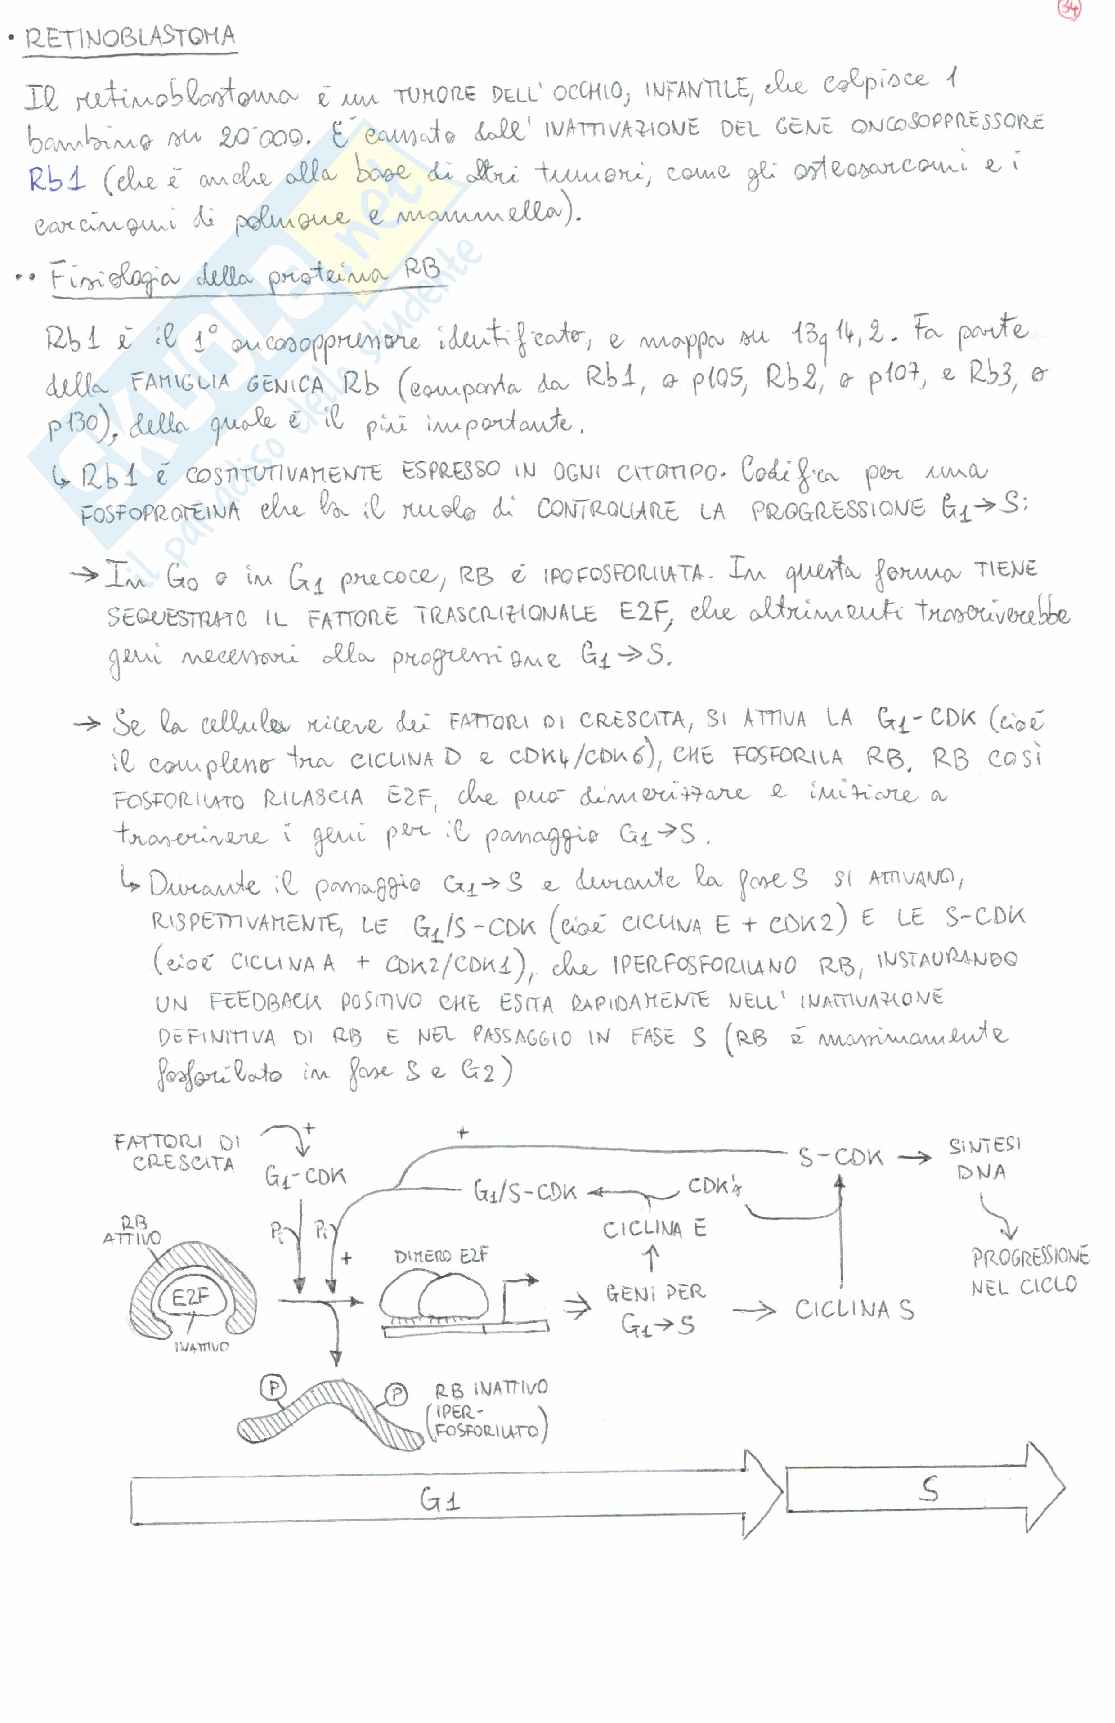 34
• RETINOBLASTOMA
Il retinoblastoma è un TUMORE DELL'OCCHIO, INFANTILE, che colpisce 1
bambino su 20'000. È causato dall'INATTIVAZIONE DEL GENE ONCOSOPPRESSORE
Rb1 (che è anche alla base di altri tumori, come gli osteosarcomi e i
carcinomi di polmone e mammella).
•• Fisiologia della proteina RB
Rb1 è il 1° oncosoppressore identificato, e mappa su 13q14,2. Fa parte
della FAMIGLIA GENICA Rb (composta da Rb1, o p105, Rb2, o p107, e Rb3, o
p130), della quale è il più importante.
↳ Rb1 è COSTITUTIVAMENTE ESPRESSO IN OGNI CITOTIPO. Codifica per una
FOSFOPROTEINA che ha il ruolo di CONTROLLARE LA PROGRESSIONE G1→S:
→ In G0 o in G1 precoce, RB è IPOFOSFORILATA. In questa forma TIENE
SEQUESTRATO IL FATTORE TRASCRIZIONALE E2F, che altrimenti trascriverebbe
geni necessari alla progressione G1→S.
→ Se la cellula riceve dei FATTORI DI CRESCITA, SI ATTIVA LA G1-CDK (cioè
il complesso tra CICLINA D e CDK4/CDK6), CHE FOSFORILA RB. RB COSÌ
FOSFORILATO RILASCIA E2F, che può dimerizzare e iniziare a
trascrivere i geni per il passaggio G1→S.
↳ Durante il passaggio G1→S e durante la fase S SI ATTIVANO,
RISPETTIVAMENTE, LE G1/S-CDK (cioè CICLINA E + CDK2) E LE S-CDK
(cioè CICLINA A + CDK2/CDK1), che IPERFOSFORILANO RB, INSTAURANDO
UN FEEDBACK POSITIVO CHE ESITA RAPIDAMENTE NELL'INATTIVAZIONE
DEFINITIVA DI RB E NEL PASSAGGIO IN FASE S (RB è massimamente
fosforilato in fase S e G2)
FATTORI DI
CRESCITA
+
G1-CDK
+
G1/S-CDK
CDK's
S-CDK
→ SINTESI
DNA
RB
ATTIVO
Pi
Pi
+
DIMERO E2F
CICLINA E
PROGRESSIONE
NEL CICLO
E2F
INATTIVO
GENI PER
G1→S
CICLINA S
P
P
RB INATTIVO
(IPER-
FOSFORILATO)
G1
S
SKUOLA.net
il paradiso dello studente